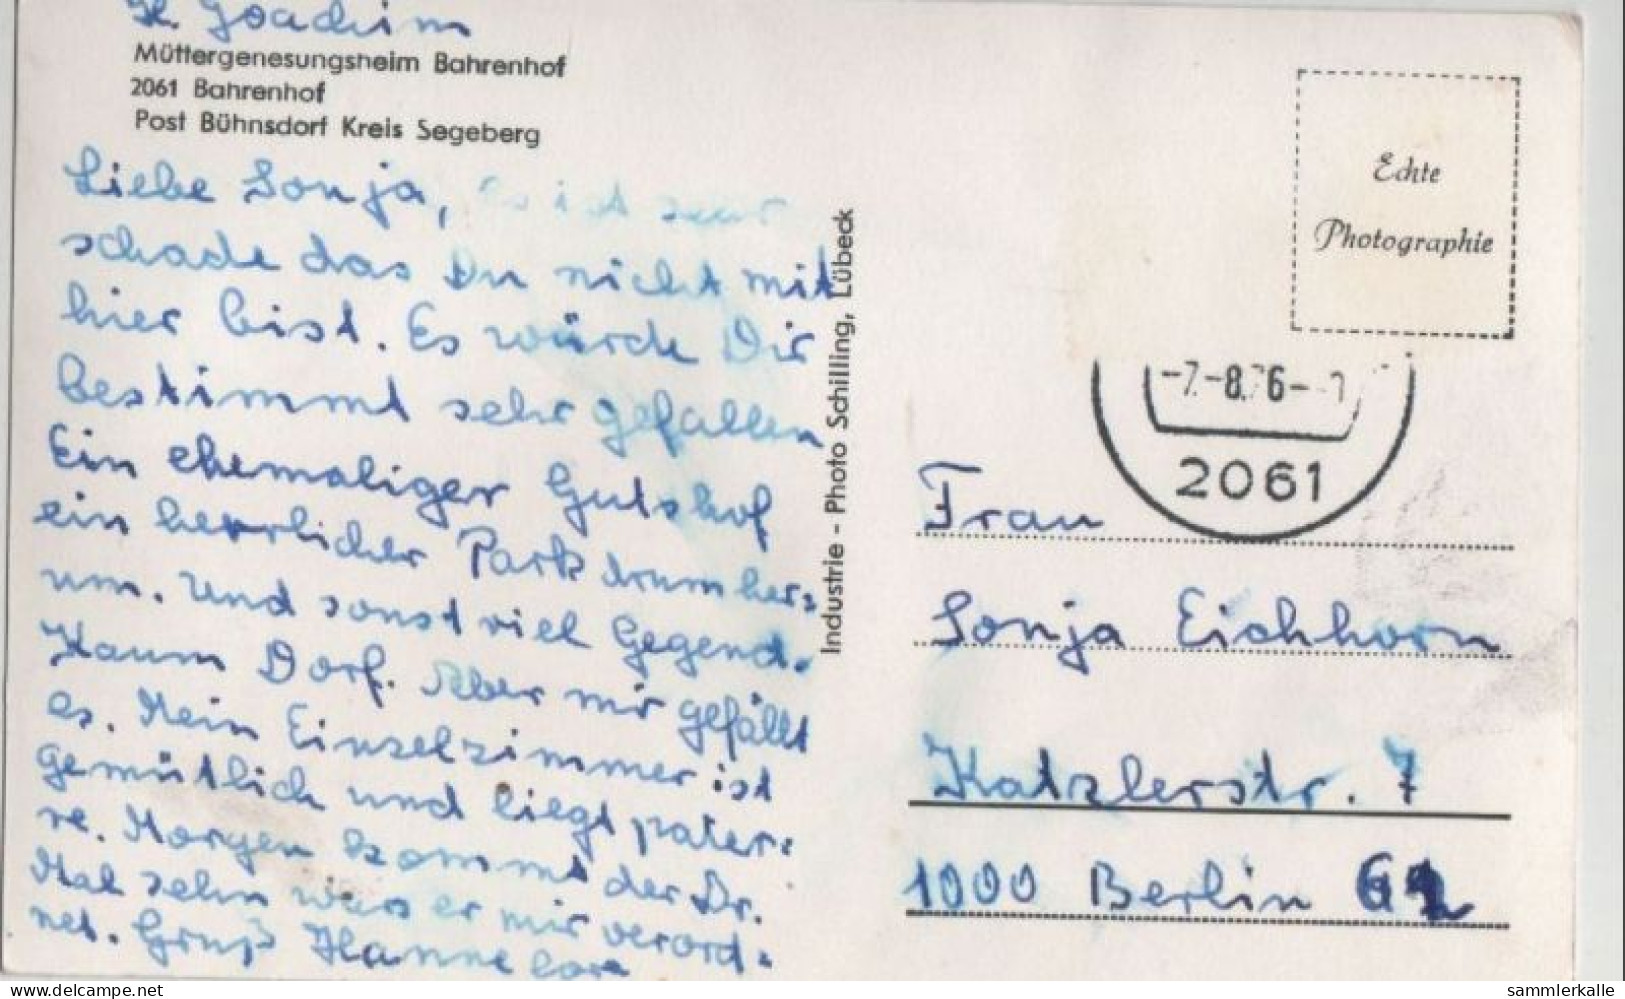 H. Joachim
Müttergenesungsheim Bahrenhof
2061 Bahrenhof
Post Bühnsdorf Kreis Segeberg
Liebe Sonja, es ist sehr
schade das Du nicht mit
hier bist. Es würde Dir
bestimmt sehr gefallen
Ein ehemaliger Gutshof
ein herrlicher Park drumher=
um. Und sonst viel Gegend.
Kaum Dorf. Aber mir gefällt
es. Mein Einzelzimmer ist
gemütlich und liegt pater=
re. Morgen kommt der Dr.
Mal sehn was er mir verord=
net. Gruß Hannelore
Industrie - Photo Schilling, Lübeck
Echte
Photographie
-7.-8.76-
2061
Frau
Sonja Eichhorn
Katzlerstr. 7
1000 Berlin 62
www.delcampe.net
sammlerkalle